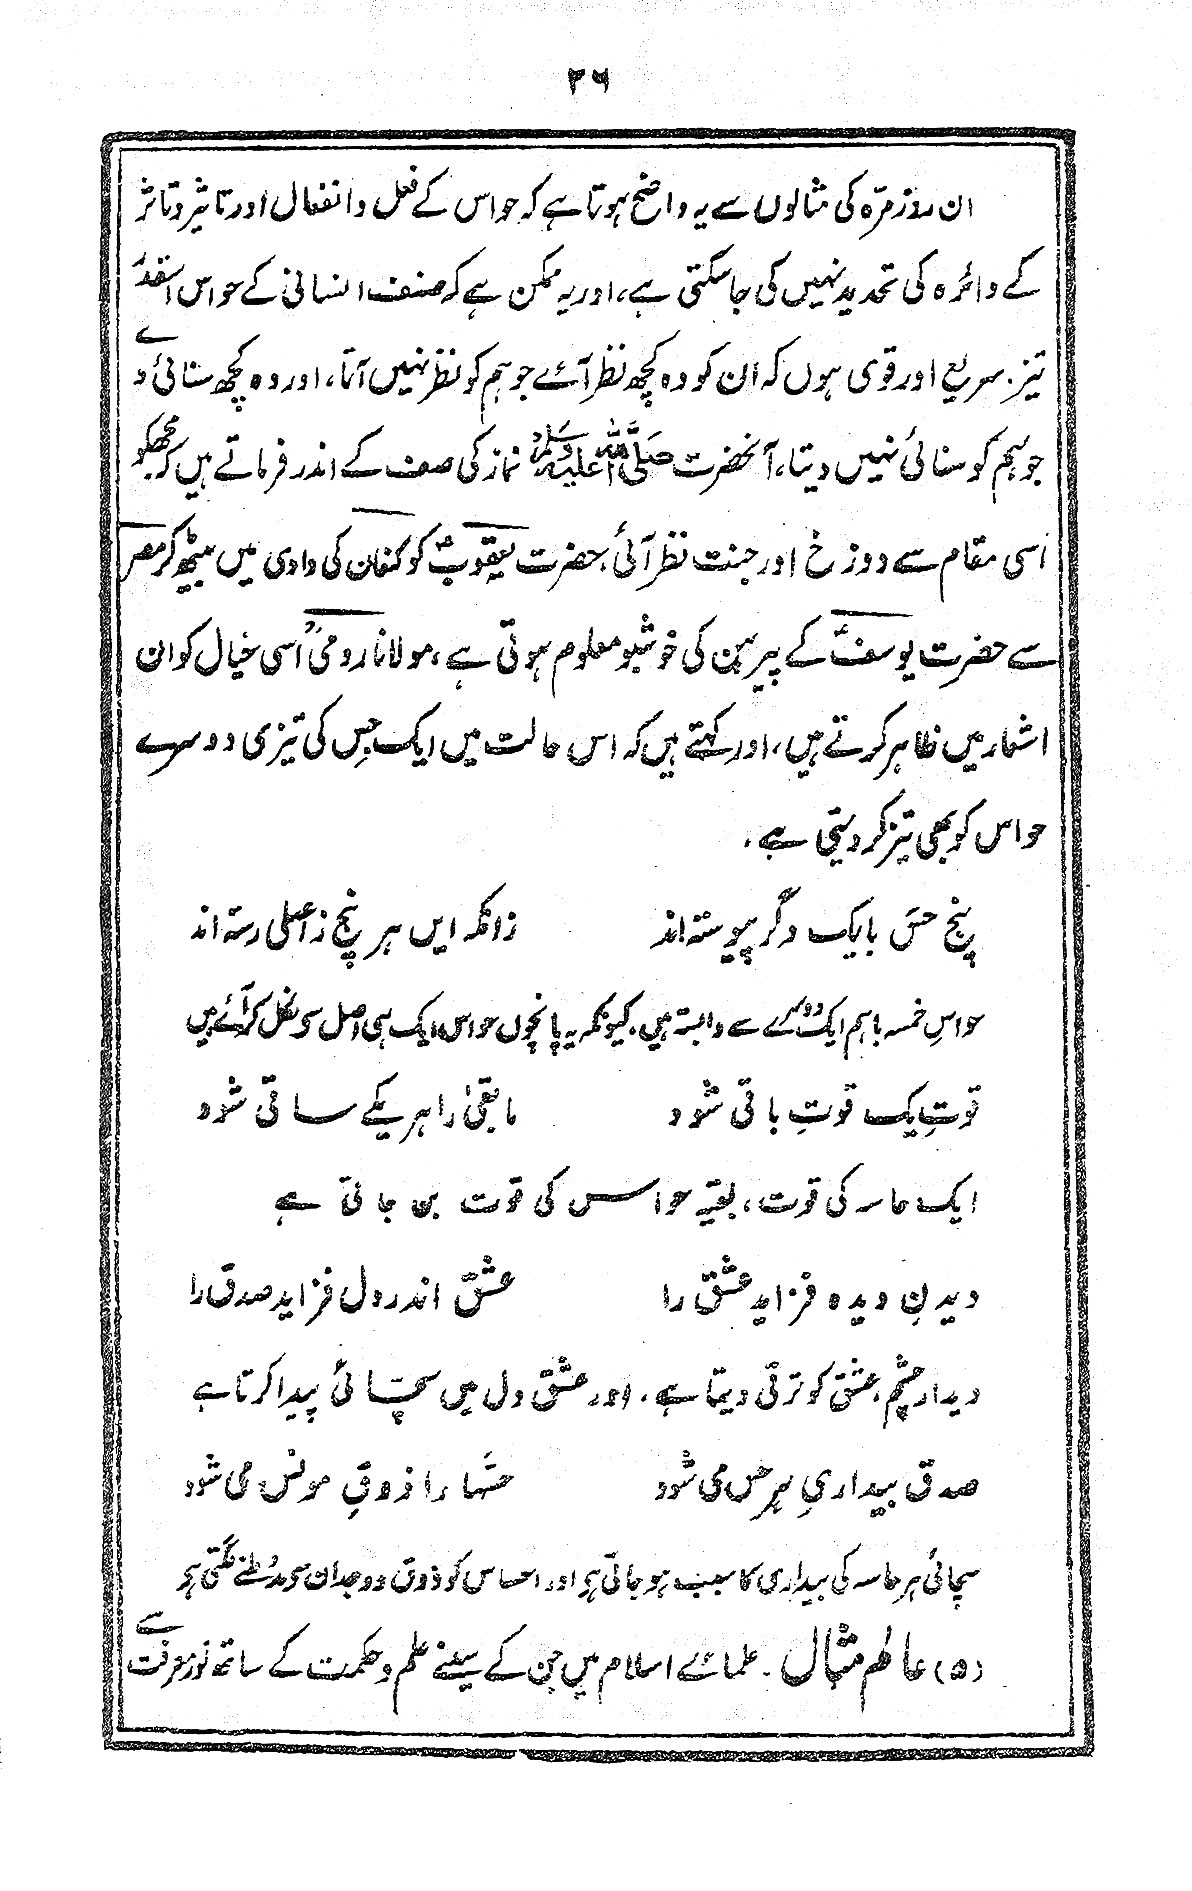 ۲۶
ان روزمرّہ کی مثالوں سے یہ واضح ہوتا ہے کہ حواس کے فعل و انفعال اور تاثیر و تاثر
کے دائرہ کی تحدید نہیں کی جا سکتی ہے، اور یہ ممکن ہے کہ صنف انسانی کے حواس اسقدر
تیز. سریع اور قوی ہوں کہ ان کو وہ کچھ نظر آئے جو ہم کو نظر نہیں آتا، اور وہ کچھ سنائی دے
جو ہم کو سنائی نہیں دیتا، آنحضرت صلی اللہ علیہ وسلم نماز کی صف کے اندر فرماتے ہیں کہ مجھکو
اسی مقام سے دوزخ اور جنت نظر آئی. حضرت یعقوبؑ کو کنعان کی وادی میں بیٹھ کر مصر
سے حضرت یوسفؑ کے پیرہن کی خوشبو معلوم ہوتی ہے، مولانا رومیؒ اسی خیال کو ان
اشعار میں ظاہر کرتے ہیں، اور کہتے ہیں کہ اس حالت میں ایک حِس کی تیزی دوسرے
حواس کو بھی تیز کر دیتی ہے.
پنج حسّ با یک دگر پیوستہ اند زانکہ ایں ہر پنج ز اصلی رستہ اند
حواسِ خمسہ باہم ایک دوسرے سے وابستہ ہیں. کیونکہ یہ پانچوں حواس ایک ہی اصل سو نکل کر آئے ہیں
قوتِ یک قوتِ باقی شود مابقیٰ را ہر یکے ساقی شود
ایک حاسہ کی قوت، بقیہ حواس کی قوت بن جاتی ہے
دیدنِ دیدہ فزاید عشق را عشق اندر دل فزاید صدق را
دیدار چشم، عشق کو ترقی دیتا ہے. اور عشق دل میں سچّائی پیدا کرتا ہے
صدق بیداریِ ہر حس می شود حسّہا را ذوق مونس می شود
سچائی ہر حاسہ کی بیداری کا سبب ہو جاتی ہو اور احساس کو ذوق و وجدان سو مدد ملنے لگتی ہو
(۵) عالم مثال۔ علمائے اسلام میں جن کے سینے علم و حکمت کے ساتھ نور معرفت سے